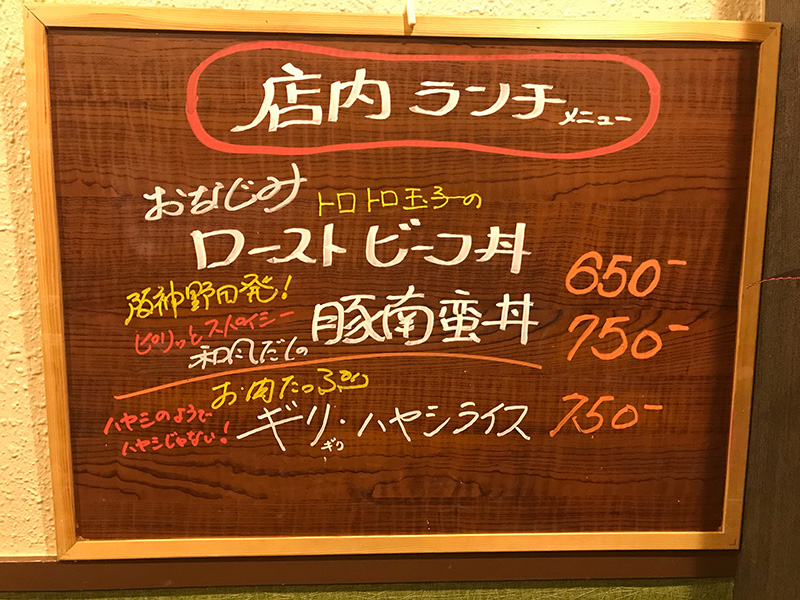 店内 ランチメニュー
おなじみ トロトロ玉子の
ローストビーフ丼 650-
阪神野田発!
ピリッとスパイシー
和風だしの 豚南蛮丼 750-
お肉たっぷり
ハヤシのようで
ハヤシじゃない!
ギリ・ハヤシライス 750-
ギリ